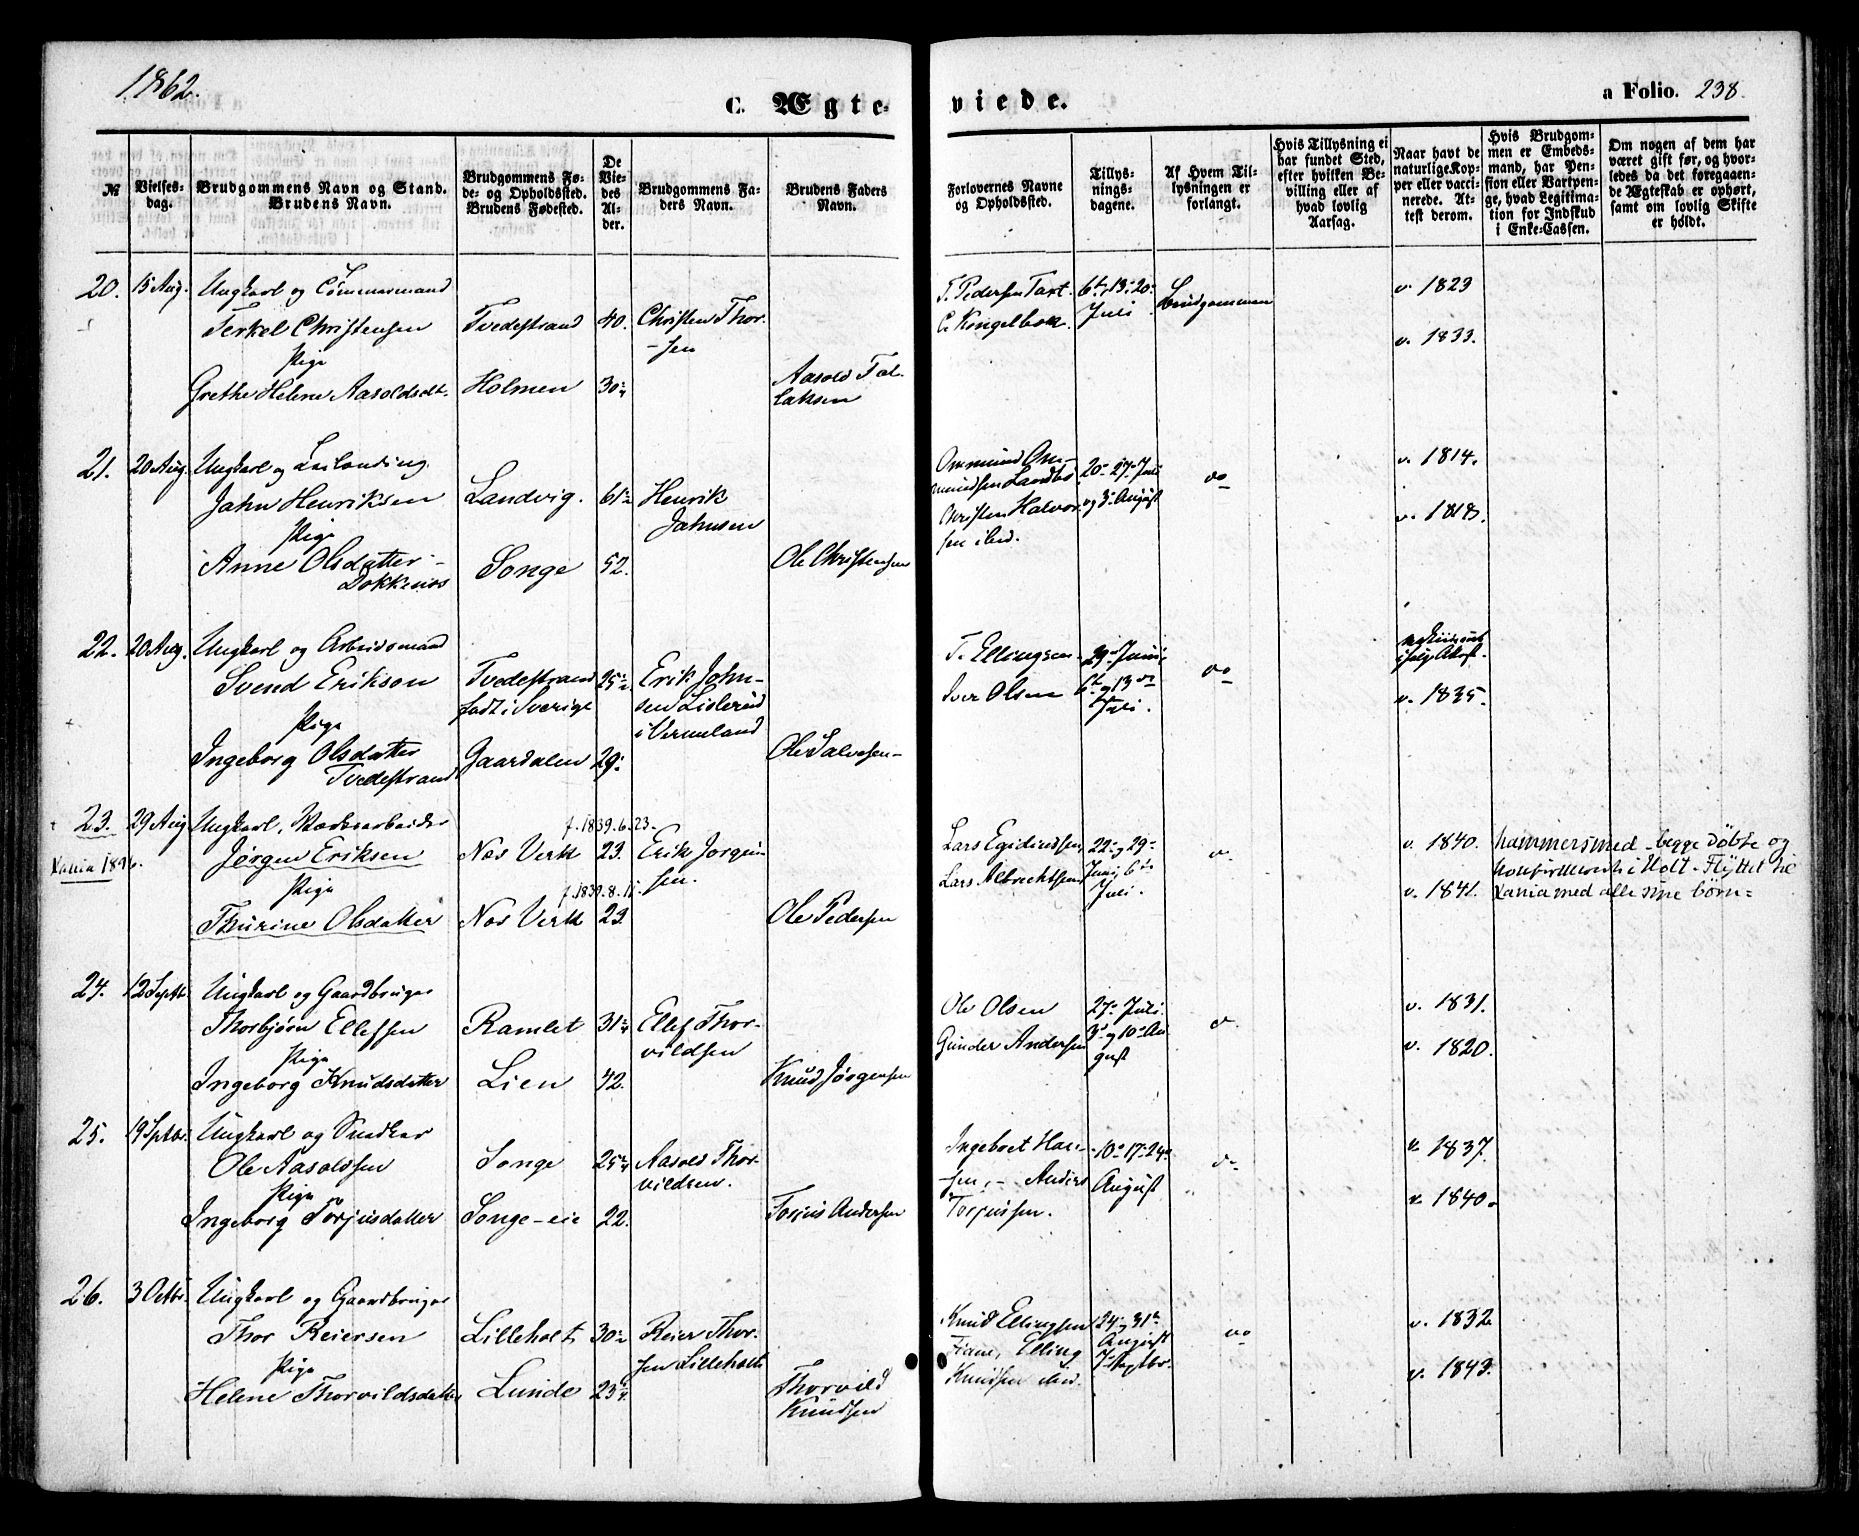 1862.
C. Ægte-
viede.
a Folio. 238.
№
Vielses-
dag.
Brudgommens Navn og Stand.
Brudens Navn.
Brudgommens Fø-
de- og Opholdssted.
Brudens Fødested.
De
Vie-
des
Al-
der.
Brudgommens Fa-
ders Navn.
Brudens Faders
Navn.
Forlovernes Navne
og Opholdssted.
Tillys-
nings-
dagene.
Af Hvem Til-
lysningen er
forlangt.
Hvis Tillysning ei
har fundet Sted,
efter hvilken Be-
villing eller af
hvad lovlig
Aarsag.
Naar havt de
naturlige Kop-
per eller vacci-
nerede. At-
test derom.
Hvis Brudgom-
men er Embeds-
mand, har Pen-
sion eller Vartpen-
ge, hvad Legitima-
tion for Indskud
i Enke-Cassen.
Om nogen af dem har
været gift før, og hvor-
ledes da det foregaaen-
de Ægteskab er ophørt,
samt om lovlig Skifte
er holdt.
20. 15 Aug. Ungkarl og Tømmermand
Terkel Christensen Tvedestrand 40. Christen Thor-
sen
Pige
Grethe Helene Aasoldsdt. Holmen 30 Aasold Tal-
laksen
T. Pedersen Taxt. 6te 13 20
Juli Brudgommen v. 1823
C. Ringelbek. v. 1833.
21. 20 Aug. Ungkarl og Leilænding
Jahn Henriksen Landvig. 61 Henrik
Jahnsen
Pige
Anne Olsdatter Songe 52. Ole Christensen
Dokkenes
Ommund Om-
mundsen Landbø 20 27 Juli
og 3 August do v. 1814.
Christen Halvor-
sen ibd. v. 1818.
22. 20 Aug. Ungkarl og Arbeidsmand
Svend Erikson Tvedestrand
født i Sverige 25 Erik John-
sen Lislerud
i Vermeland
Pige
Ingeborg Olsdatter
Tvedestrand Gaardalen 29 Ole Salvesen
T. Ellingsen 29 Juni
Iver Olsen 6te og 13de
Juli. do vakcineret
ifølge Attest.
v. 1835.
23. 29 Aug Ungkarl, Værksarbeider
Xania 1896.
f. 1839.6.23.
Jørgen Eriksen Næs Verk 23. Erik Jørgen-
sen.
Pige
f. 1839.8.11.
Thurine Olsdatter Næs Verk 23. Ole Pedersen
Lars Egidiussen 22 og 29
Lars Albrechtsen Juni, 6te
Juli. do v. 1840.
v. 1841.
hammersmed - begge døbte og
konfirmerte i Holt. Flyttet til
Xania med alle sine børn -
24. 12 Septb. Ungkarl og Gaardbruger
Thorbjørn Ellefsen Ramlet 31 Ellef Thor-
vildsen
Pige
Ingeborg Knudsdatter Lien 42. Knud Jørgensen
Ole Olsen 27 Juli.
Gunder Andersen 3 og 10 Au-
gust do. v. 1831.
v. 1820.
25. 19 Septbr. Ungkarl og Snedker
Ole Aasoldsen Songe 25 Aasold Thor-
vildsen.
Pige
Ingeborg Torjusdatter Songe-eie 22. Torjus Andersen
Ingebret Han-
sen, - Anders
Torjussen. 10 17 24
August do v. 1837.
v. 1840.
26. 3 Octbr. Ungkarl og Gaardbruger
Thor Reiersen Lilleholt 30 Reier Thor-
sen Lilleholt
Pige
Helene Thorvildsdatter Lunde 23 Thorvild
Knudsen
Knud Ellingsen 24 og 31
Fiane, Elling
Knudsen ibd. August
7 Septbr. do v. 1832
v. 1843.